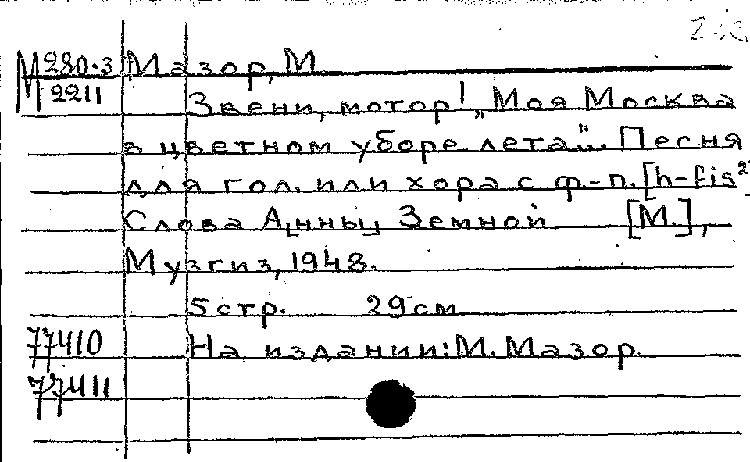 М280-3 Мазор, М.
М 2211 Звени, мотор! „Моя Москва
в цветном уборе лета...". Песня
для гол. или хора с ф.-п. [h-fis²]
Слова А[нны] Земной [М.],
Музгиз, 1948.
5 стр. 29 см
77410 На издании: М. Мазор.
77411